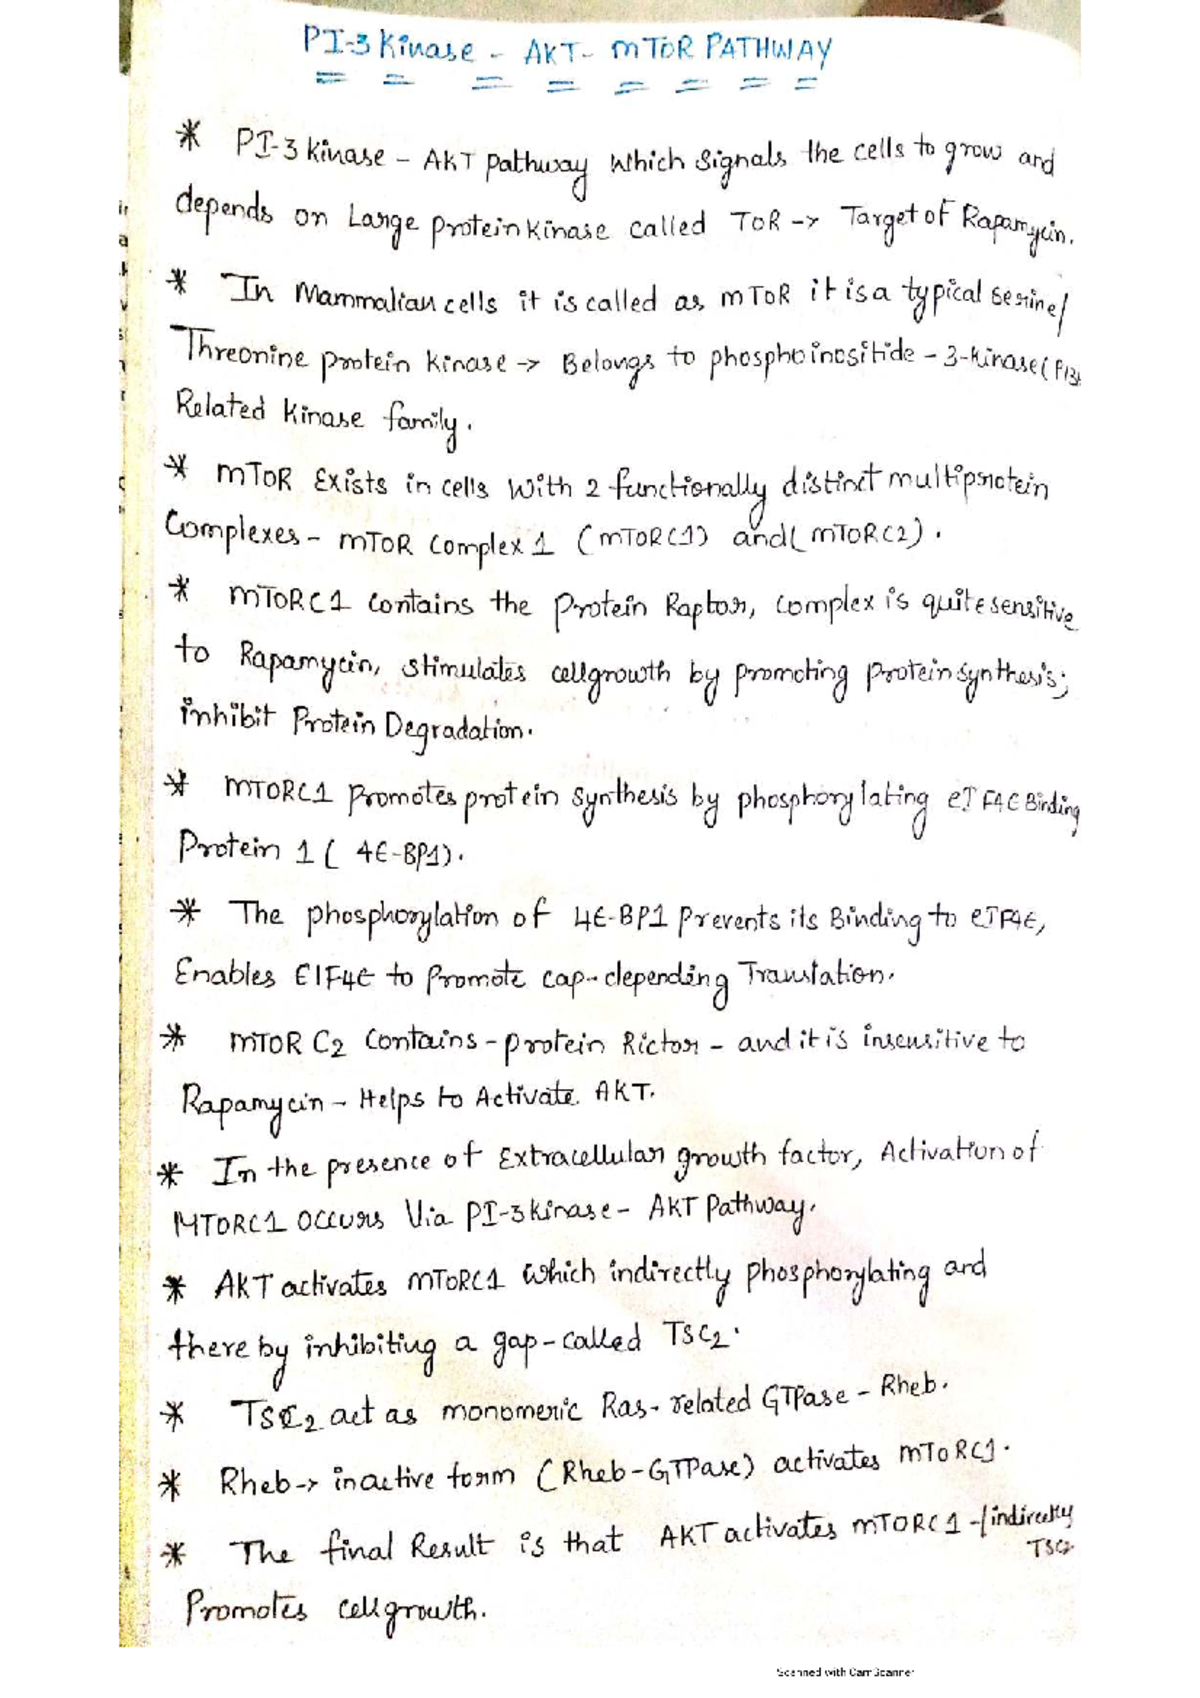 PI-3 Kinase - AKT - mTOR PATHWAY
* PI-3 kinase - AKT pathway which signals the cells to grow and
depends on Large protein kinase called TOR -> Target of Rapamycin.
* In Mammalian cells it is called as mTOR it is a typical serine/
Threonine protein kinase -> Belongs to phosphoinositide - 3-kinase (PI3K
Related kinase family.
* mTOR Exists in cells with 2 functionally distinct multiprotein
Complexes - mTOR complex 1 (mTORC1) and (mTORC2).
* mTORC1 contains the protein Raptor, complex is quite sensitive
to Rapamycin, stimulates cell growth by promoting protein synthesis;
inhibit Protein Degradation.
* mTORC1 promotes protein synthesis by phosphorylating eIF4E Binding
Protein 1 ( 4E-BP1).
* The phosphorylation of 4E-BP1 prevents its Binding to eIF4E,
Enables EIF4E to promote cap-depending Translation.
* mTOR C2 contains - protein Rictor - and it is insensitive to
Rapamycin - Helps to Activate AKT.
* In the presence of Extracellular growth factor, Activation of
MTORC1 occurs Via PI-3 kinase - AKT Pathway.
* AKT activates mTORC1 which indirectly phosphorylating and
there by inhibiting a gap-called TSC2.
* TSC2 act as monomeric Ras-related GTPase - Rheb.
* Rheb -> inactive form (Rheb-GTPase) activates mTORC1.
* The final Result is that AKT activates mTORC1 -/indirectly
TSC2
Promotes cell growth.
Scanned with CamScanner